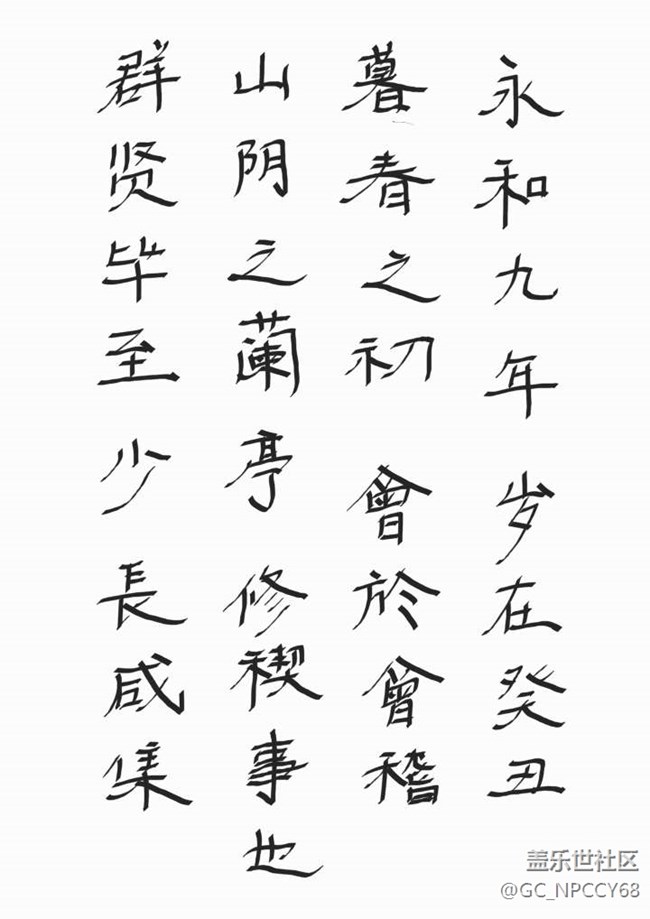 永和九年岁在癸丑
暮春之初會於會稽
山阴之蘭亭修禊事也
群贤毕至少長咸集
盖乐世社区
@GC_NPCCY68